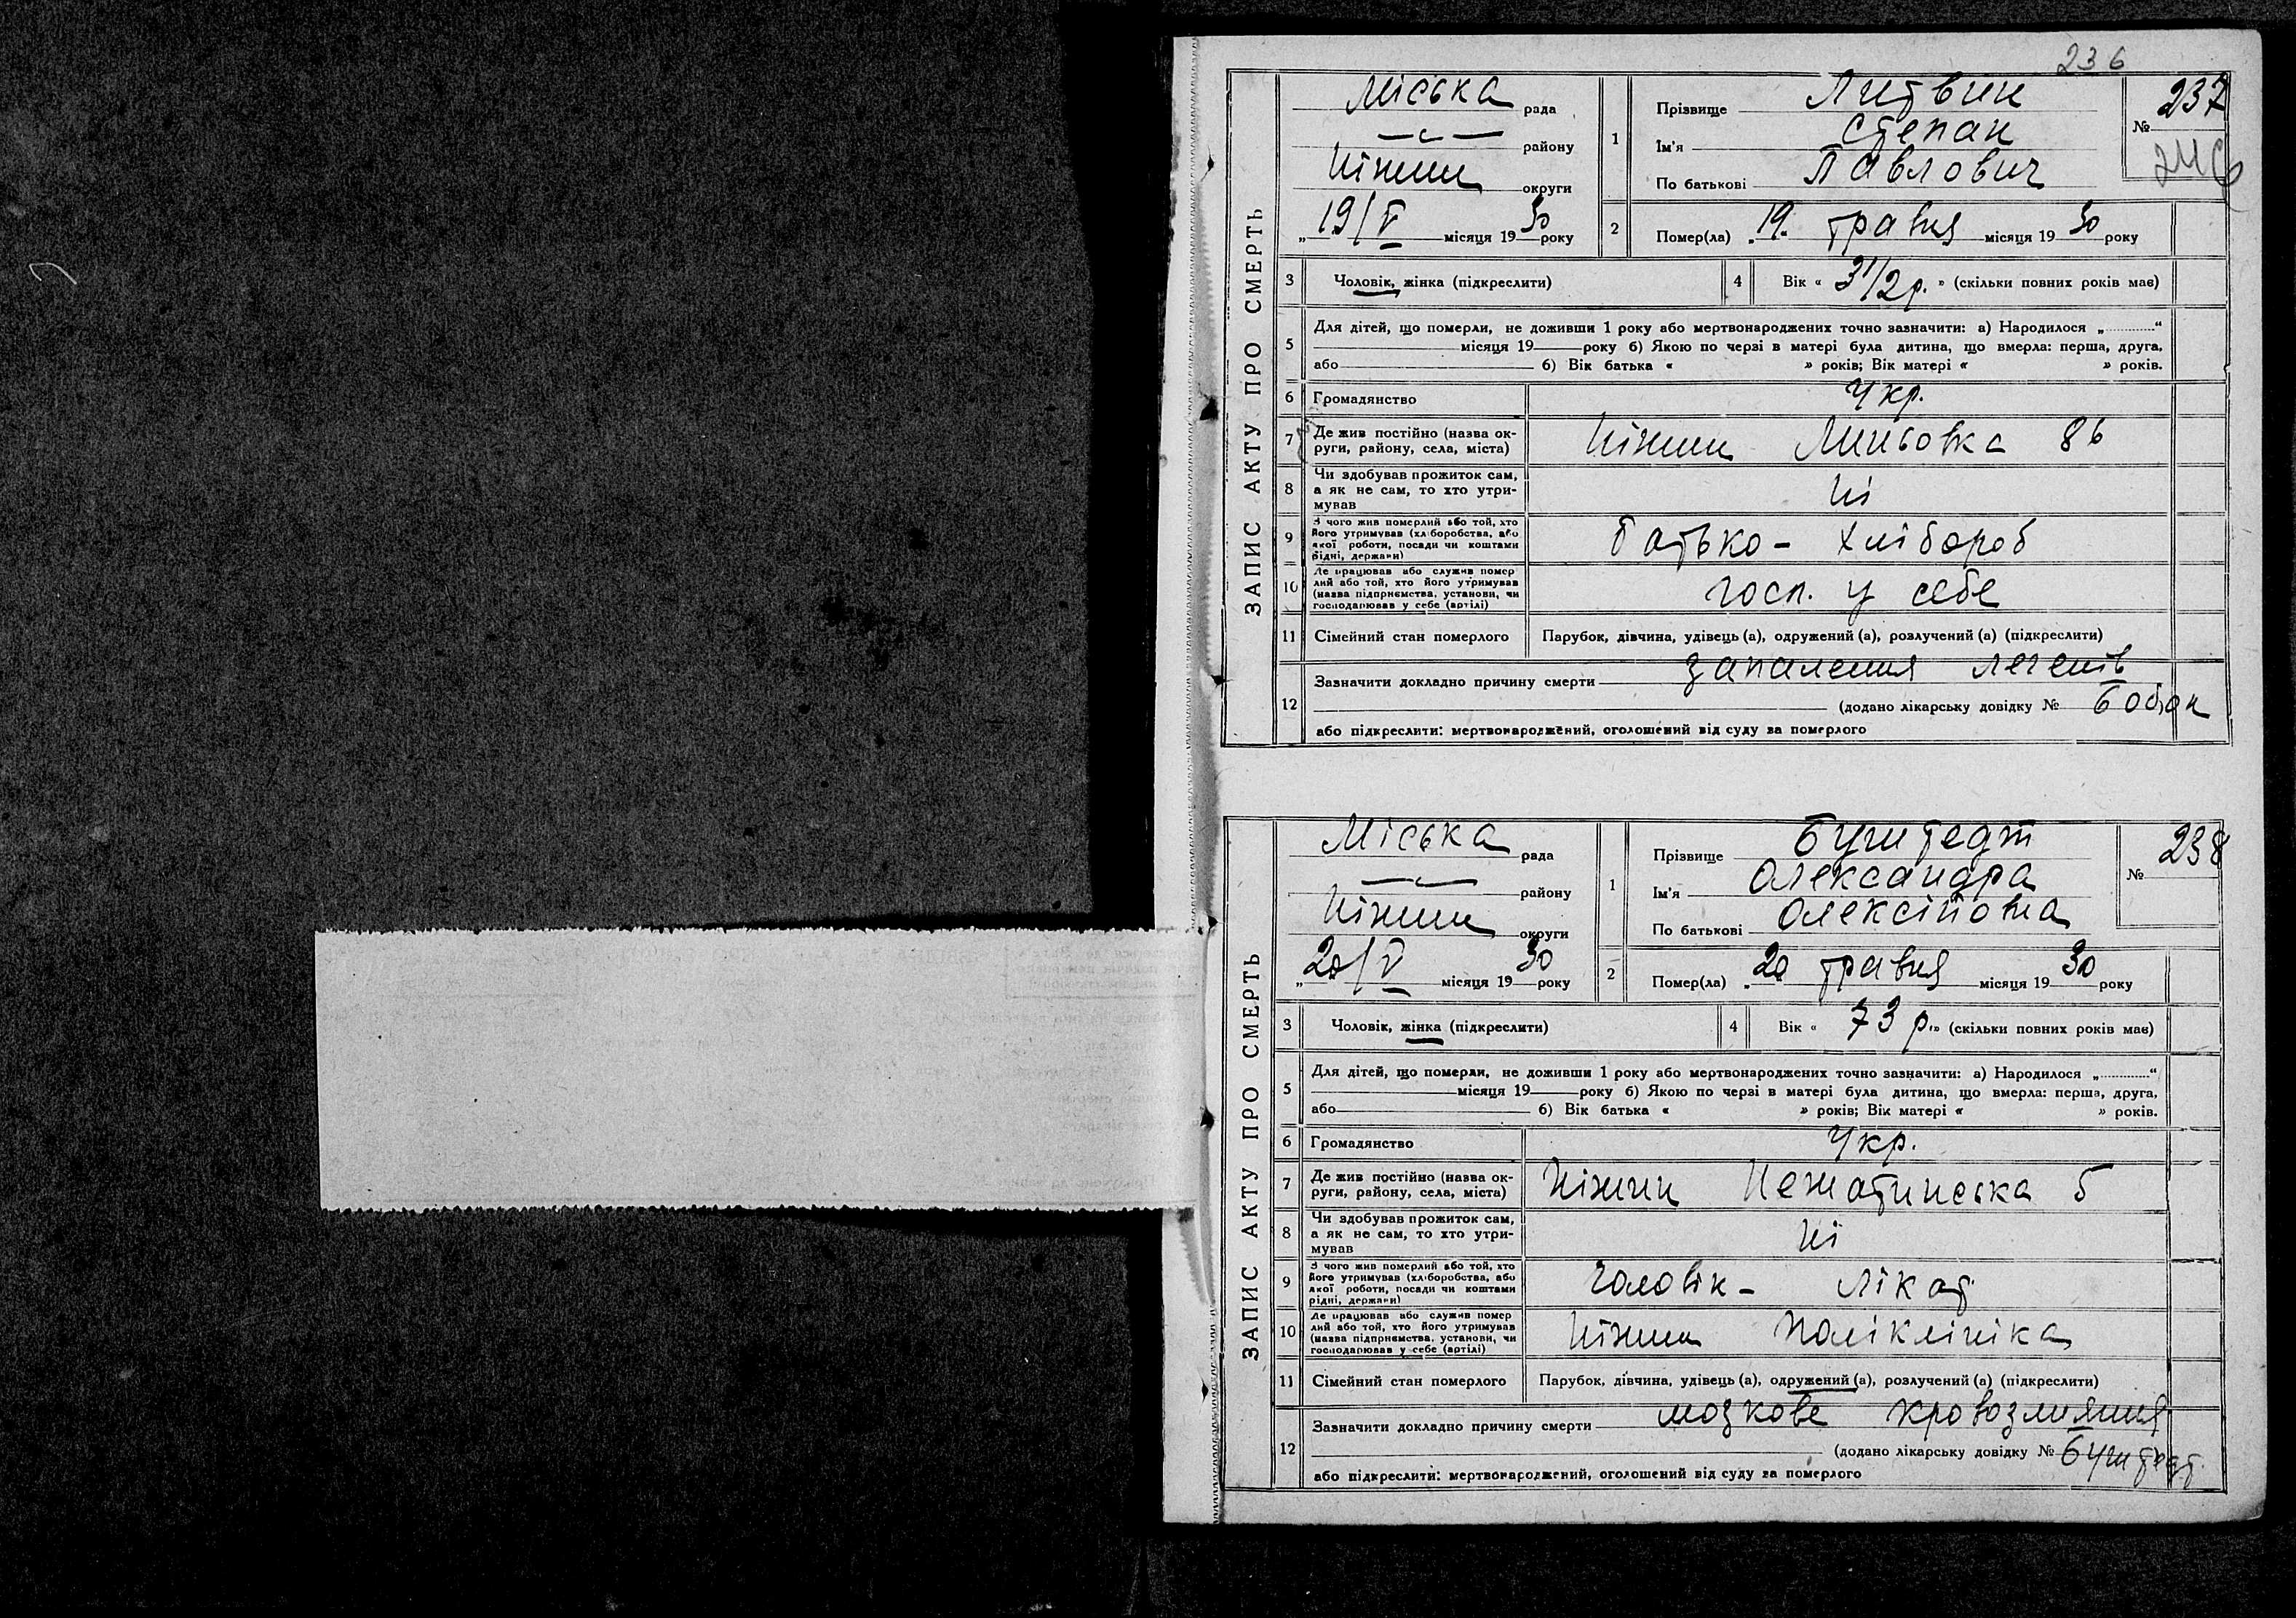 236
ЗАПИС АКТУ ПРО СМЕРТЬ
Міська рада
району
Ніжин округи
„ 19/V місяця 1930 року
1
Прізвище Литвин
Ім'я Степан
По батькові Павлович
№ 237
246
2 Помер(ла) „ 19. травня місяця 1930 року
3 Чоловік, жінка (підкреслити)
4 Вік « 3 1/2 р. » (скільки повних років має)
5 Для дітей, що померли, не доживши 1 року або мертвонароджених точно зазначити: а) Народилося „ “
місяця 19 року б) Якою по черзі в матері була дитина, що вмерла: перша, друга,
або б) Вік батька « » років; Вік матері « » років.
6 Громадянство Укр.
7 Де жив постійно (назва ок-
руги, району, села, міста) Ніжин 86
8 Чи здобував прожиток сам,
а як не сам, то хто утри-
мував Ні
9 З чого жив померлий або той, хто
його утримував (хліборобства, або
якої роботи, посади чи коштами
рідні, держави) батько – хлібороб
10 Де працював або служив помер
лий або той, хто його утримував
(назва підприємства, установи, чи
господарював у себе (артілі) госп. у себе
11 Сімейний стан померлого Парубок, дівчина, удівець (а), одружений (а), розлучений (а) (підкреслити)
12 Зазначити докладно причину смерти запалення легенів
(додано лікарську довідку №
або підкреслити: мертвонароджений, оголошений від суду за померлого
ЗАПИС АКТУ ПРО СМЕРТЬ
Міська рада
району
Ніжин округи
„ 20/V місяця 1930 року
1
Прізвище
Ім'я Олександра
По батькові Олексіївна
№ 238
2 Помер(ла) „ 20 травня місяця 1930 року
3 Чоловік, жінка (підкреслити)
4 Вік « 73 р. » (скільки повних років має)
5 Для дітей, що померли, не доживши 1 року або мертвонароджених точно зазначити: а) Народилося „ “
місяця 19 року б) Якою по черзі в матері була дитина, що вмерла: перша, друга,
або б) Вік батька « » років; Вік матері « » років.
6 Громадянство Укр.
7 Де жив постійно (назва ок-
руги, району, села, міста) Ніжин 5
8 Чи здобував прожиток сам,
а як не сам, то хто утри-
мував Ні
9 З чого жив померлий або той, хто
його утримував (хліборобства, або
якої роботи, посади чи коштами
рідні, держави) чоловік –
10 Де працював або служив помер
лий або той, хто його утримував
(назва підприємства, установи, чи
господарював у себе (артілі) Ніжин Поліклініка
11 Сімейний стан померлого Парубок, дівчина, удівець (а), одружений (а), розлучений (а) (підкреслити)
12 Зазначити докладно причину смерти мозкове
(додано лікарську довідку №
або підкреслити: мертвонароджений, оголошений від суду за померлого